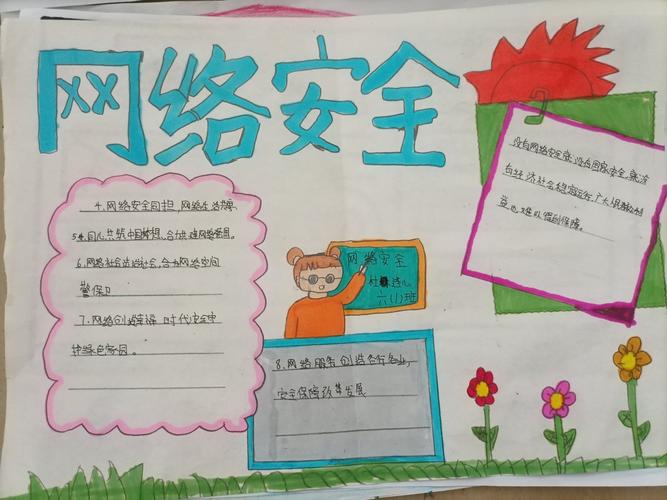 网络安全
4.网络安全同担,网络生活
5.同心共筑中国梦想,合力共建网络家园。
6.网络社会法治社会,合力网络空间
警保卫
7.网络创造幸福时代安全守
护绿色家园。
网络安全
六(1)班
8.网络服务创造各行各业,
安全保障改革发展
没有网络安全就没有国家安全,就没
有经济社会稳定运行,广大人民群众利
益也难以得到保障。